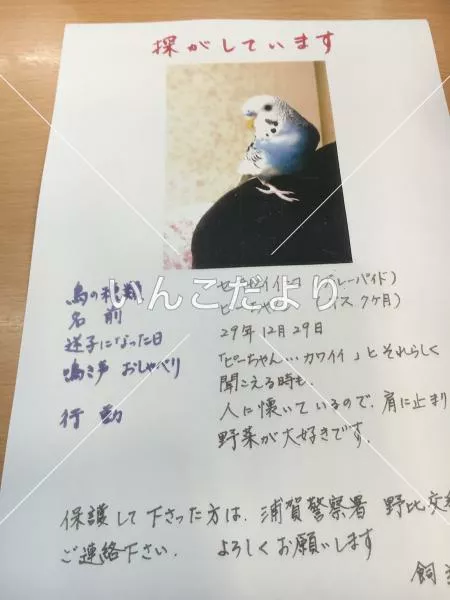 探がしています
鳥の種類 セキセイインコ (グレーパイド)
名前 ピーちゃん オス 7ヶ月)
迷子になった日 29年12月29日
鳴き声 おしゃべり 「ピーちゃん…カワイイ」とそれらしく
聞こえる時も、
行動 人に懐いているので、肩に止まり
野菜が大好きです.
いんこだより
保護して下さった方は、浦賀警察署 野比交
ご連絡下さい. よろしくお願いします
飼